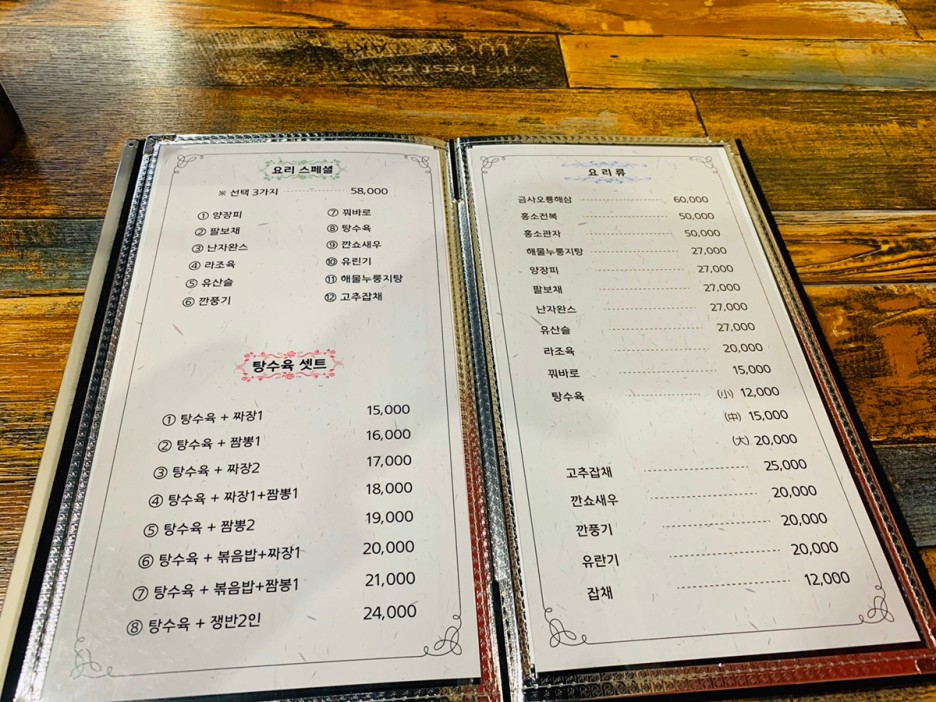 LUCKY
with best re
요리 스페셜
※ 선택 3가지 58,000
① 양장피
② 팔보채
③ 난자완스
④ 라조육
⑤ 유산슬
⑥ 깐풍기
⑦ 꿔바로
⑧ 탕수육
⑨ 깐쇼새우
⑩ 유린기
⑪ 해물누룽지탕
⑫ 고추잡채
탕수육 셋트
① 탕수육 + 짜장1 15,000
② 탕수육 + 짬뽕1 16,000
③ 탕수육 + 짜장2 17,000
④ 탕수육 + 짜장1+짬뽕1 18,000
⑤ 탕수육 + 짬뽕2 19,000
⑥ 탕수육 + 볶음밥+짜장1 20,000
⑦ 탕수육 + 볶음밥+짬봉1 21,000
⑧ 탕수육 + 쟁반2인 24,000
요리류
금사오룡해삼 60,000
홍소전복 50,000
홍소관자 50,000
해물누룽지탕 27,000
양장피 27,000
팔보채 27,000
난자완스 27,000
유산슬 27,000
라조육 20,000
꿔바로 15,000
탕수육 (小) 12,000
(中) 15,000
(大) 20,000
고추잡채 25,000
깐쇼새우 20,000
깐풍기 20,000
유란기 20,000
잡채 12,000